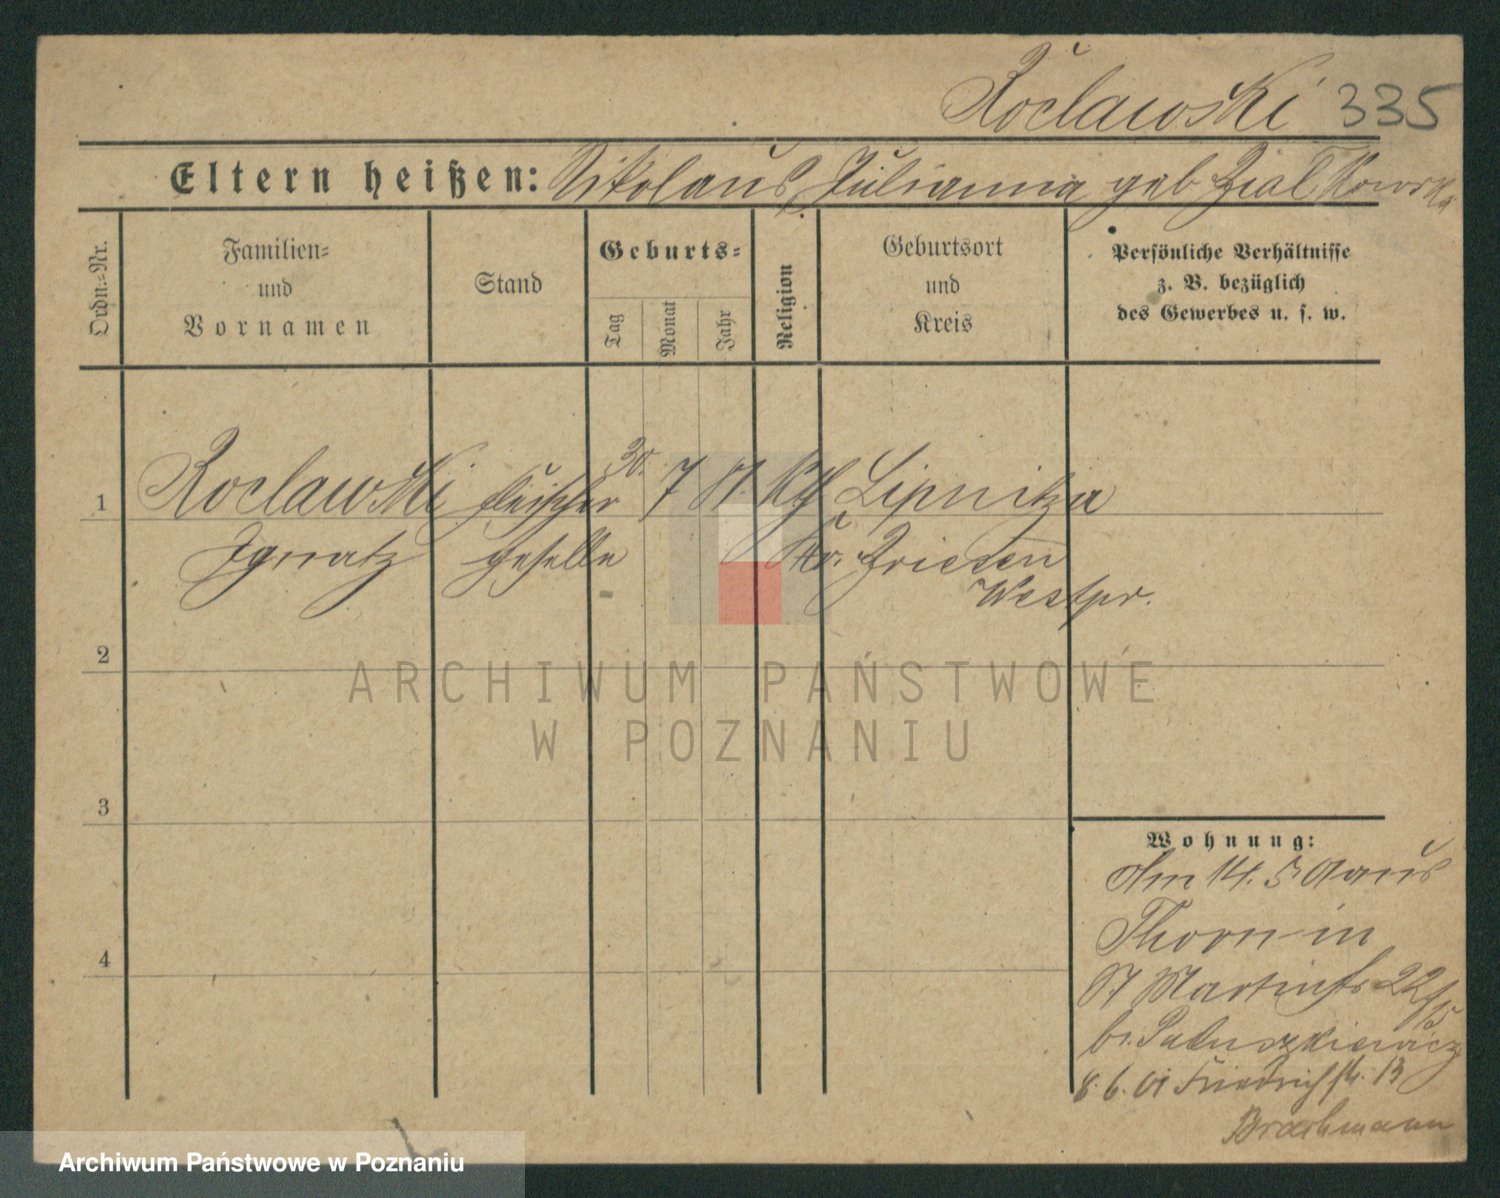 Roclawski 335
Eltern heißen: Nikolaus, Julianna geb Zialkowska
Ordn.-Nr.
Familien-
und
Vornamen
Stand
Geburts-
Tag
Monat
Jahr
Religion
Geburtsort
und
Kreis
Persönliche Verhältnisse
z. B. bezüglich
des Gewerbes u. s. w.
1 Roclawski Fleischer 30. 7 81. Kth Lipnitza
Ignatz geselle Kr. Briesen
Westpr.
2
3
4
Wohnung:
Am 14. 5. aus
Thorn in
St Martinstr 22
b. Paluszkiewicz
8. 6. 01 Friedrichstr. 13
ARCHIWUM PAŃSTWOWE
W POZNANIU
Archiwum Państwowe w Poznaniu